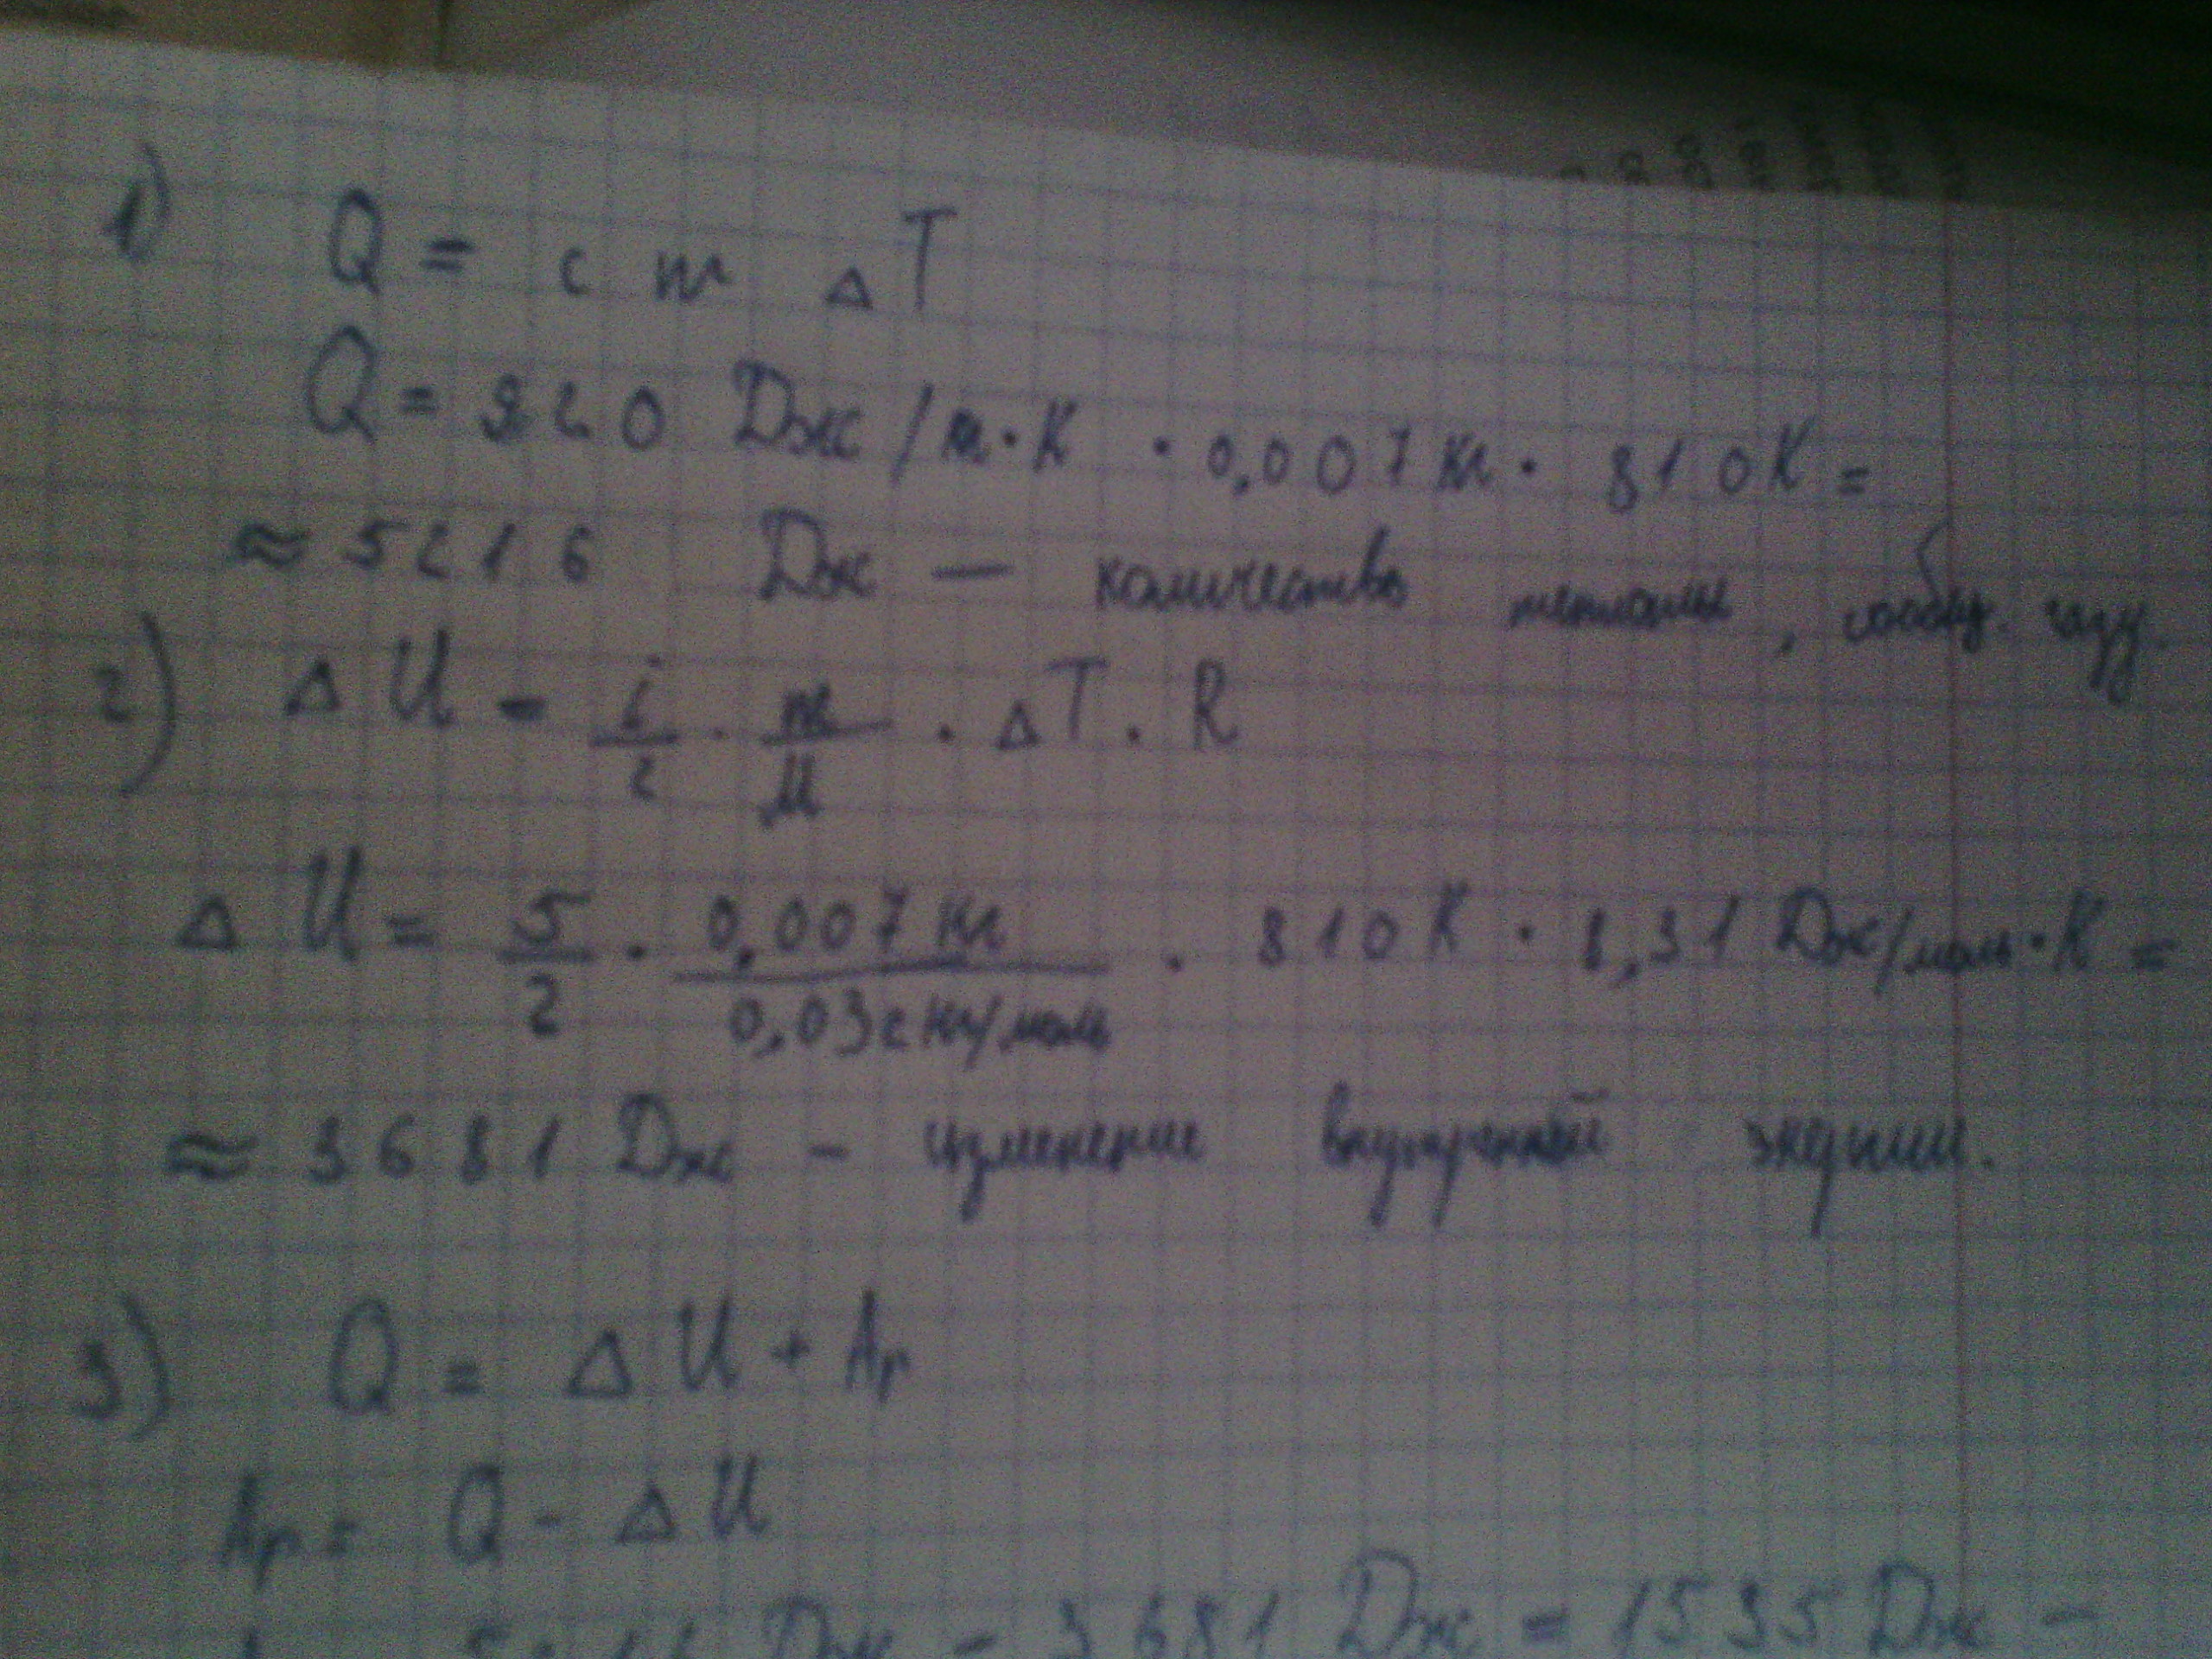 1) Q = c m ΔT
Q = 920 Дж/кг·К · 0,007 кг · 810К =
≈ 5216 Дж — количество теплоты, сообщ. газу.
2) ΔU = i/2 · m/μ · ΔT · R
ΔU = 5/2 · 0,007 кг/0,032 кг/моль · 810 К · 8,31 Дж/моль·К =
≈ 3681 Дж - изменение внутренней энергии.
3) Q = ΔU + Ap
Ap = Q - ΔU
5216 Дж - 3681 Дж = 1535 Дж -